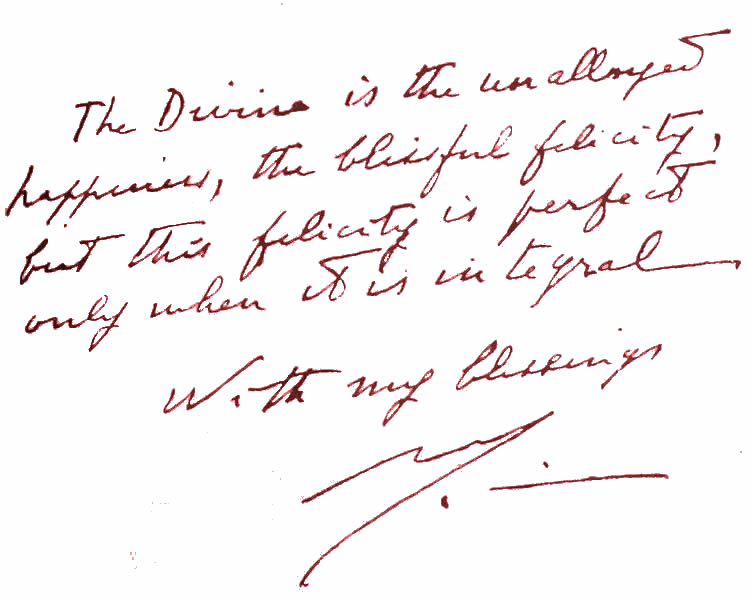 The Divine is the unalloyed
happiness, the blissful felicity,
but this felicity is perfect
only when it is integral
With my blessings